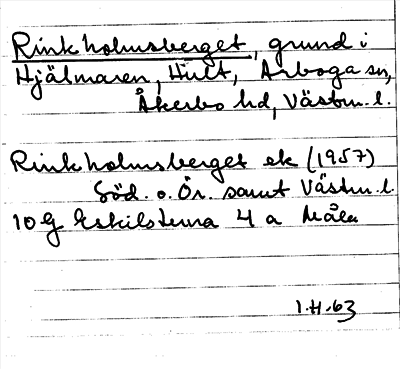 Rinkholmsberget, grund i
Hjälmaren, Hult, Arboga sn,
Åkerbo hd, Västm. l.
Rinkholmsberget ek (1957)
Söd. o. Ör. samt Västm. l.
10 G Eskilstuna 4 a Mälu
1.H.63